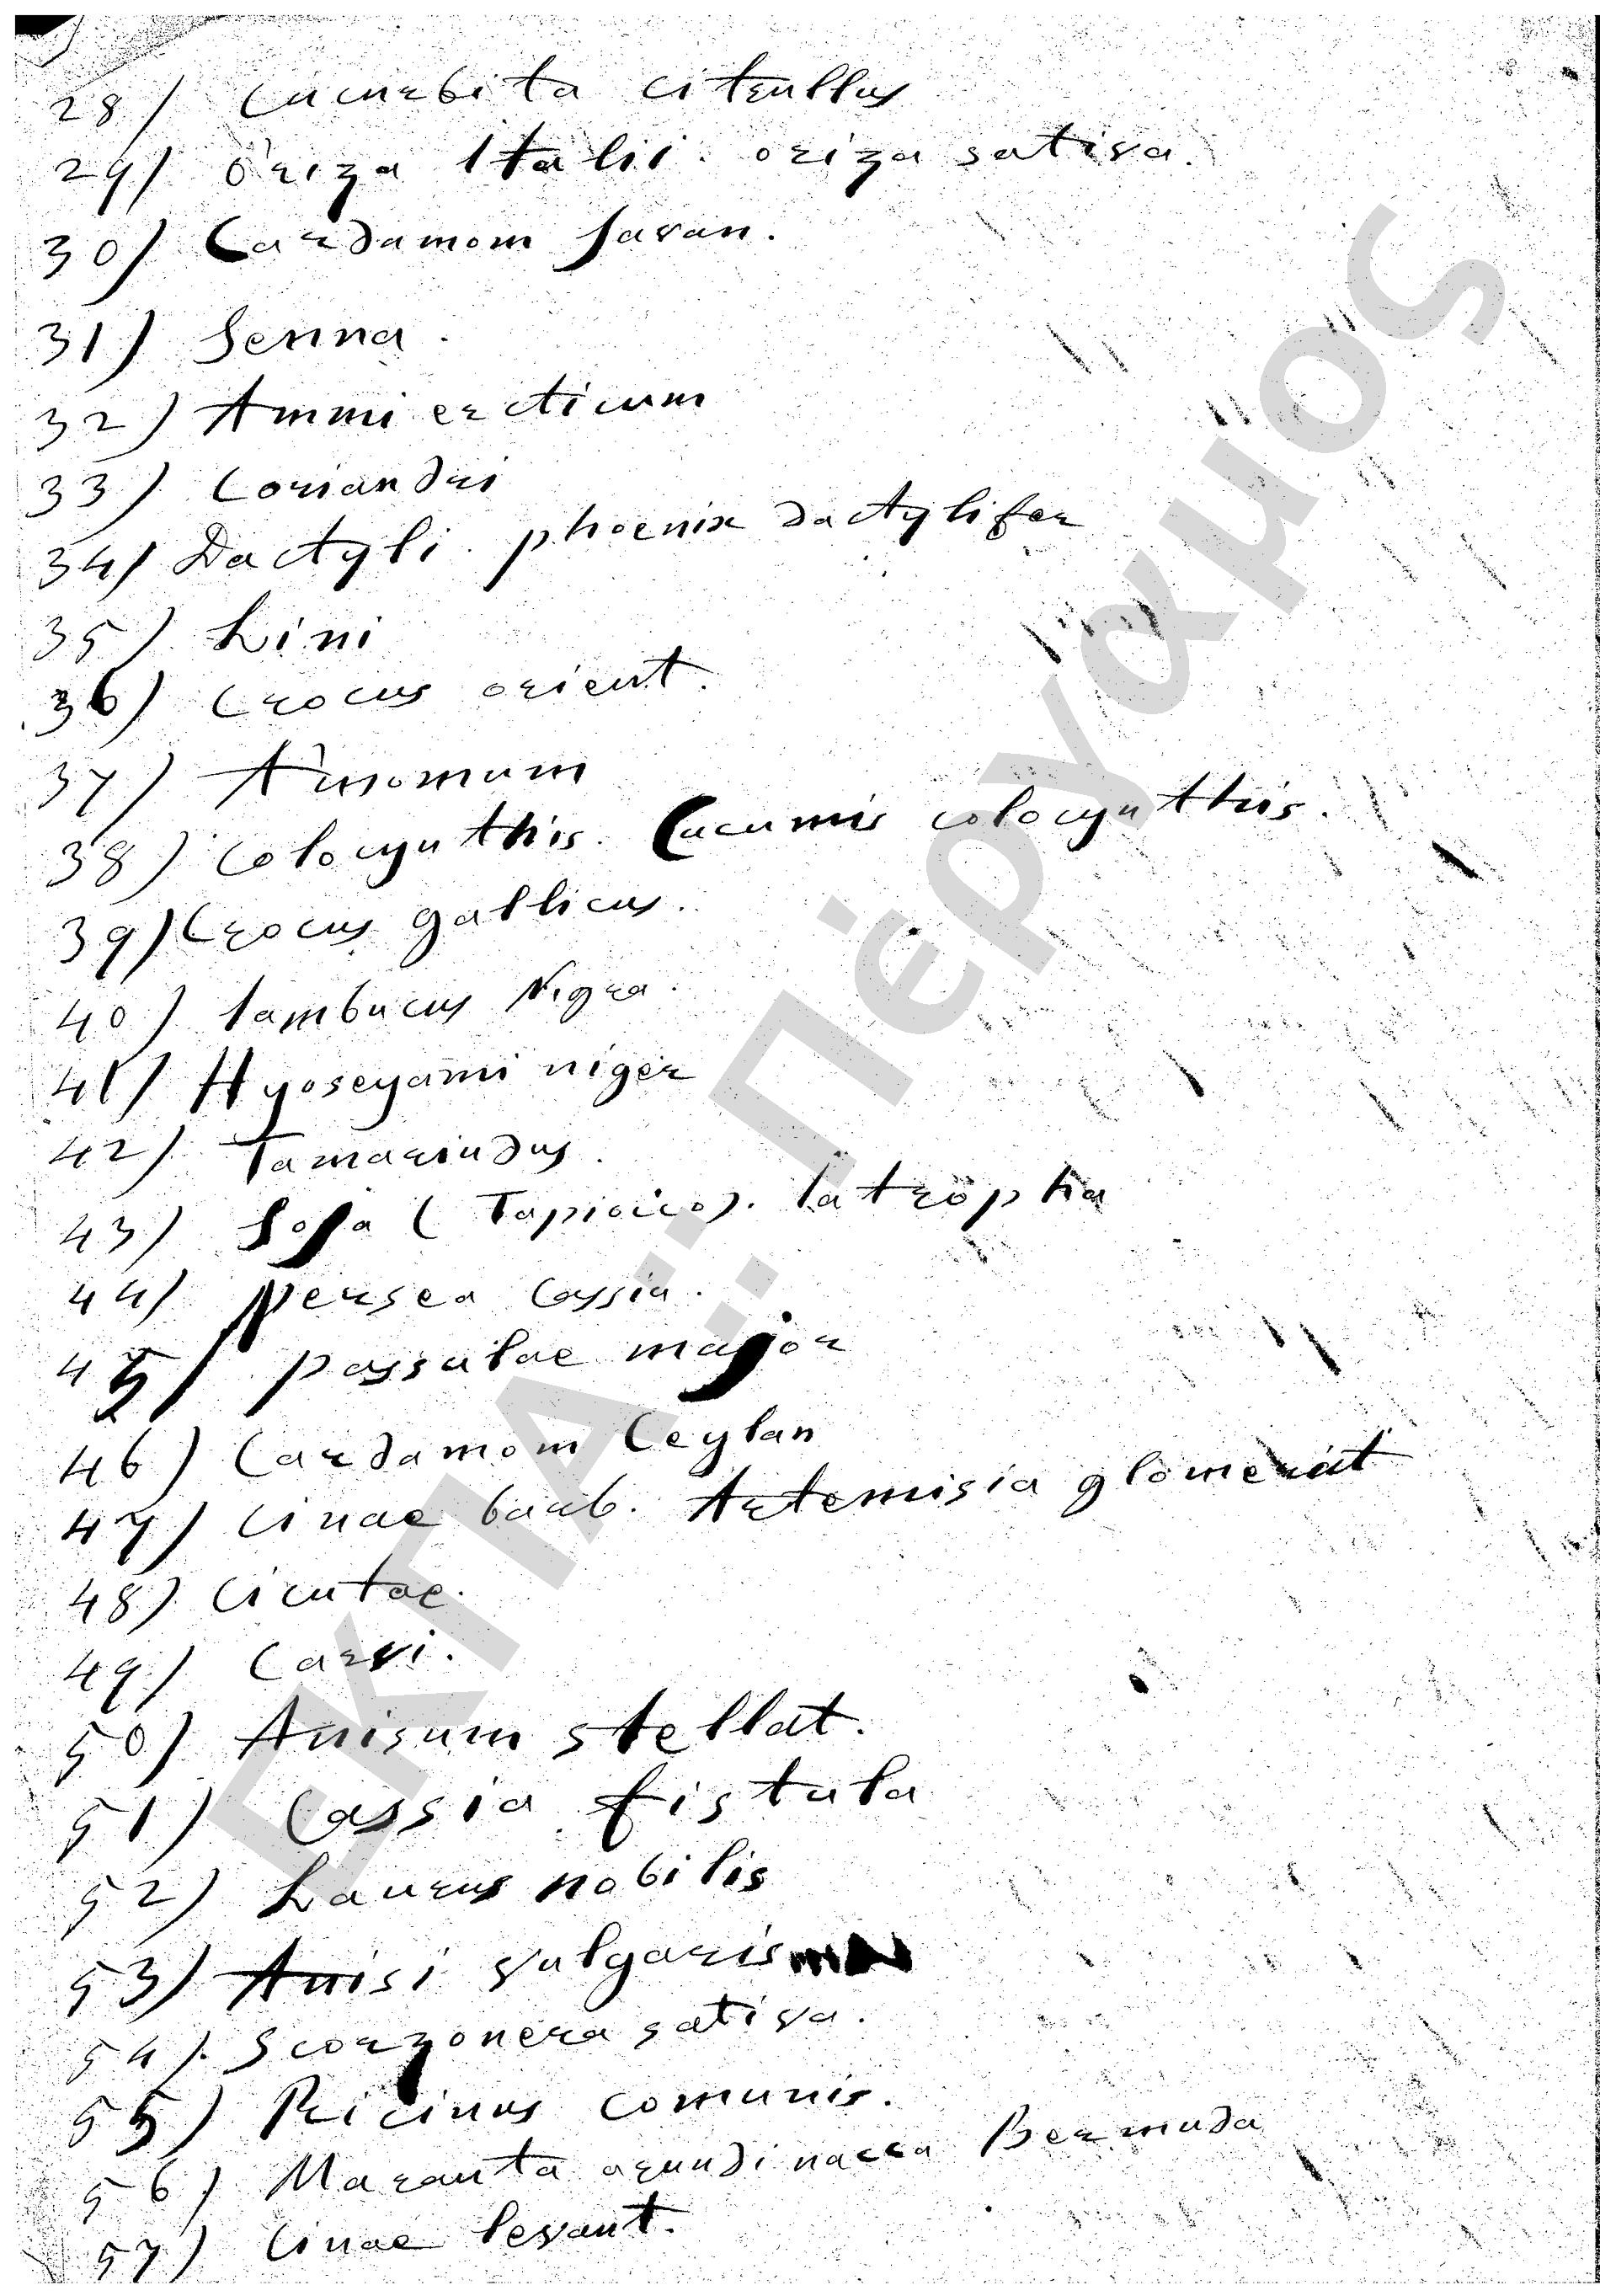 28) Cucurbita citrullus
29) Oriza Italii. oriza sativa.
30) Cardamom Javan.
31) Senna.
32) Ammi ercticum
33) Coriandri
34) Dactyli. phoenix dactylifer
35) Lini
36) Crocus orient.
37) Amomum
38) Colocynthis. Cucumis colocynthis.
39) Crocus gallicus.
40) Sambucus Nigra.
41) Hyoseyami niger
42) Tamarindus.
43) Soja (Tapioico). Iatropha
44) Persea Cassia.
45) passulae major
46) Cardamom Ceylan
47) Cinae barb. Artemisia glomerat
48) Cicutae.
49) Carvi.
50) Anisum stellat.
51) Cassia fistula
52) Laurus nobilis
53) Anisi vulgaris
54). Scorzonera sativa.
55) Ricinus comunis.
56) Maranta arundinacea Bermuda
57) Cinae levant.
ΕΚΠΑ:: Πέργαμος